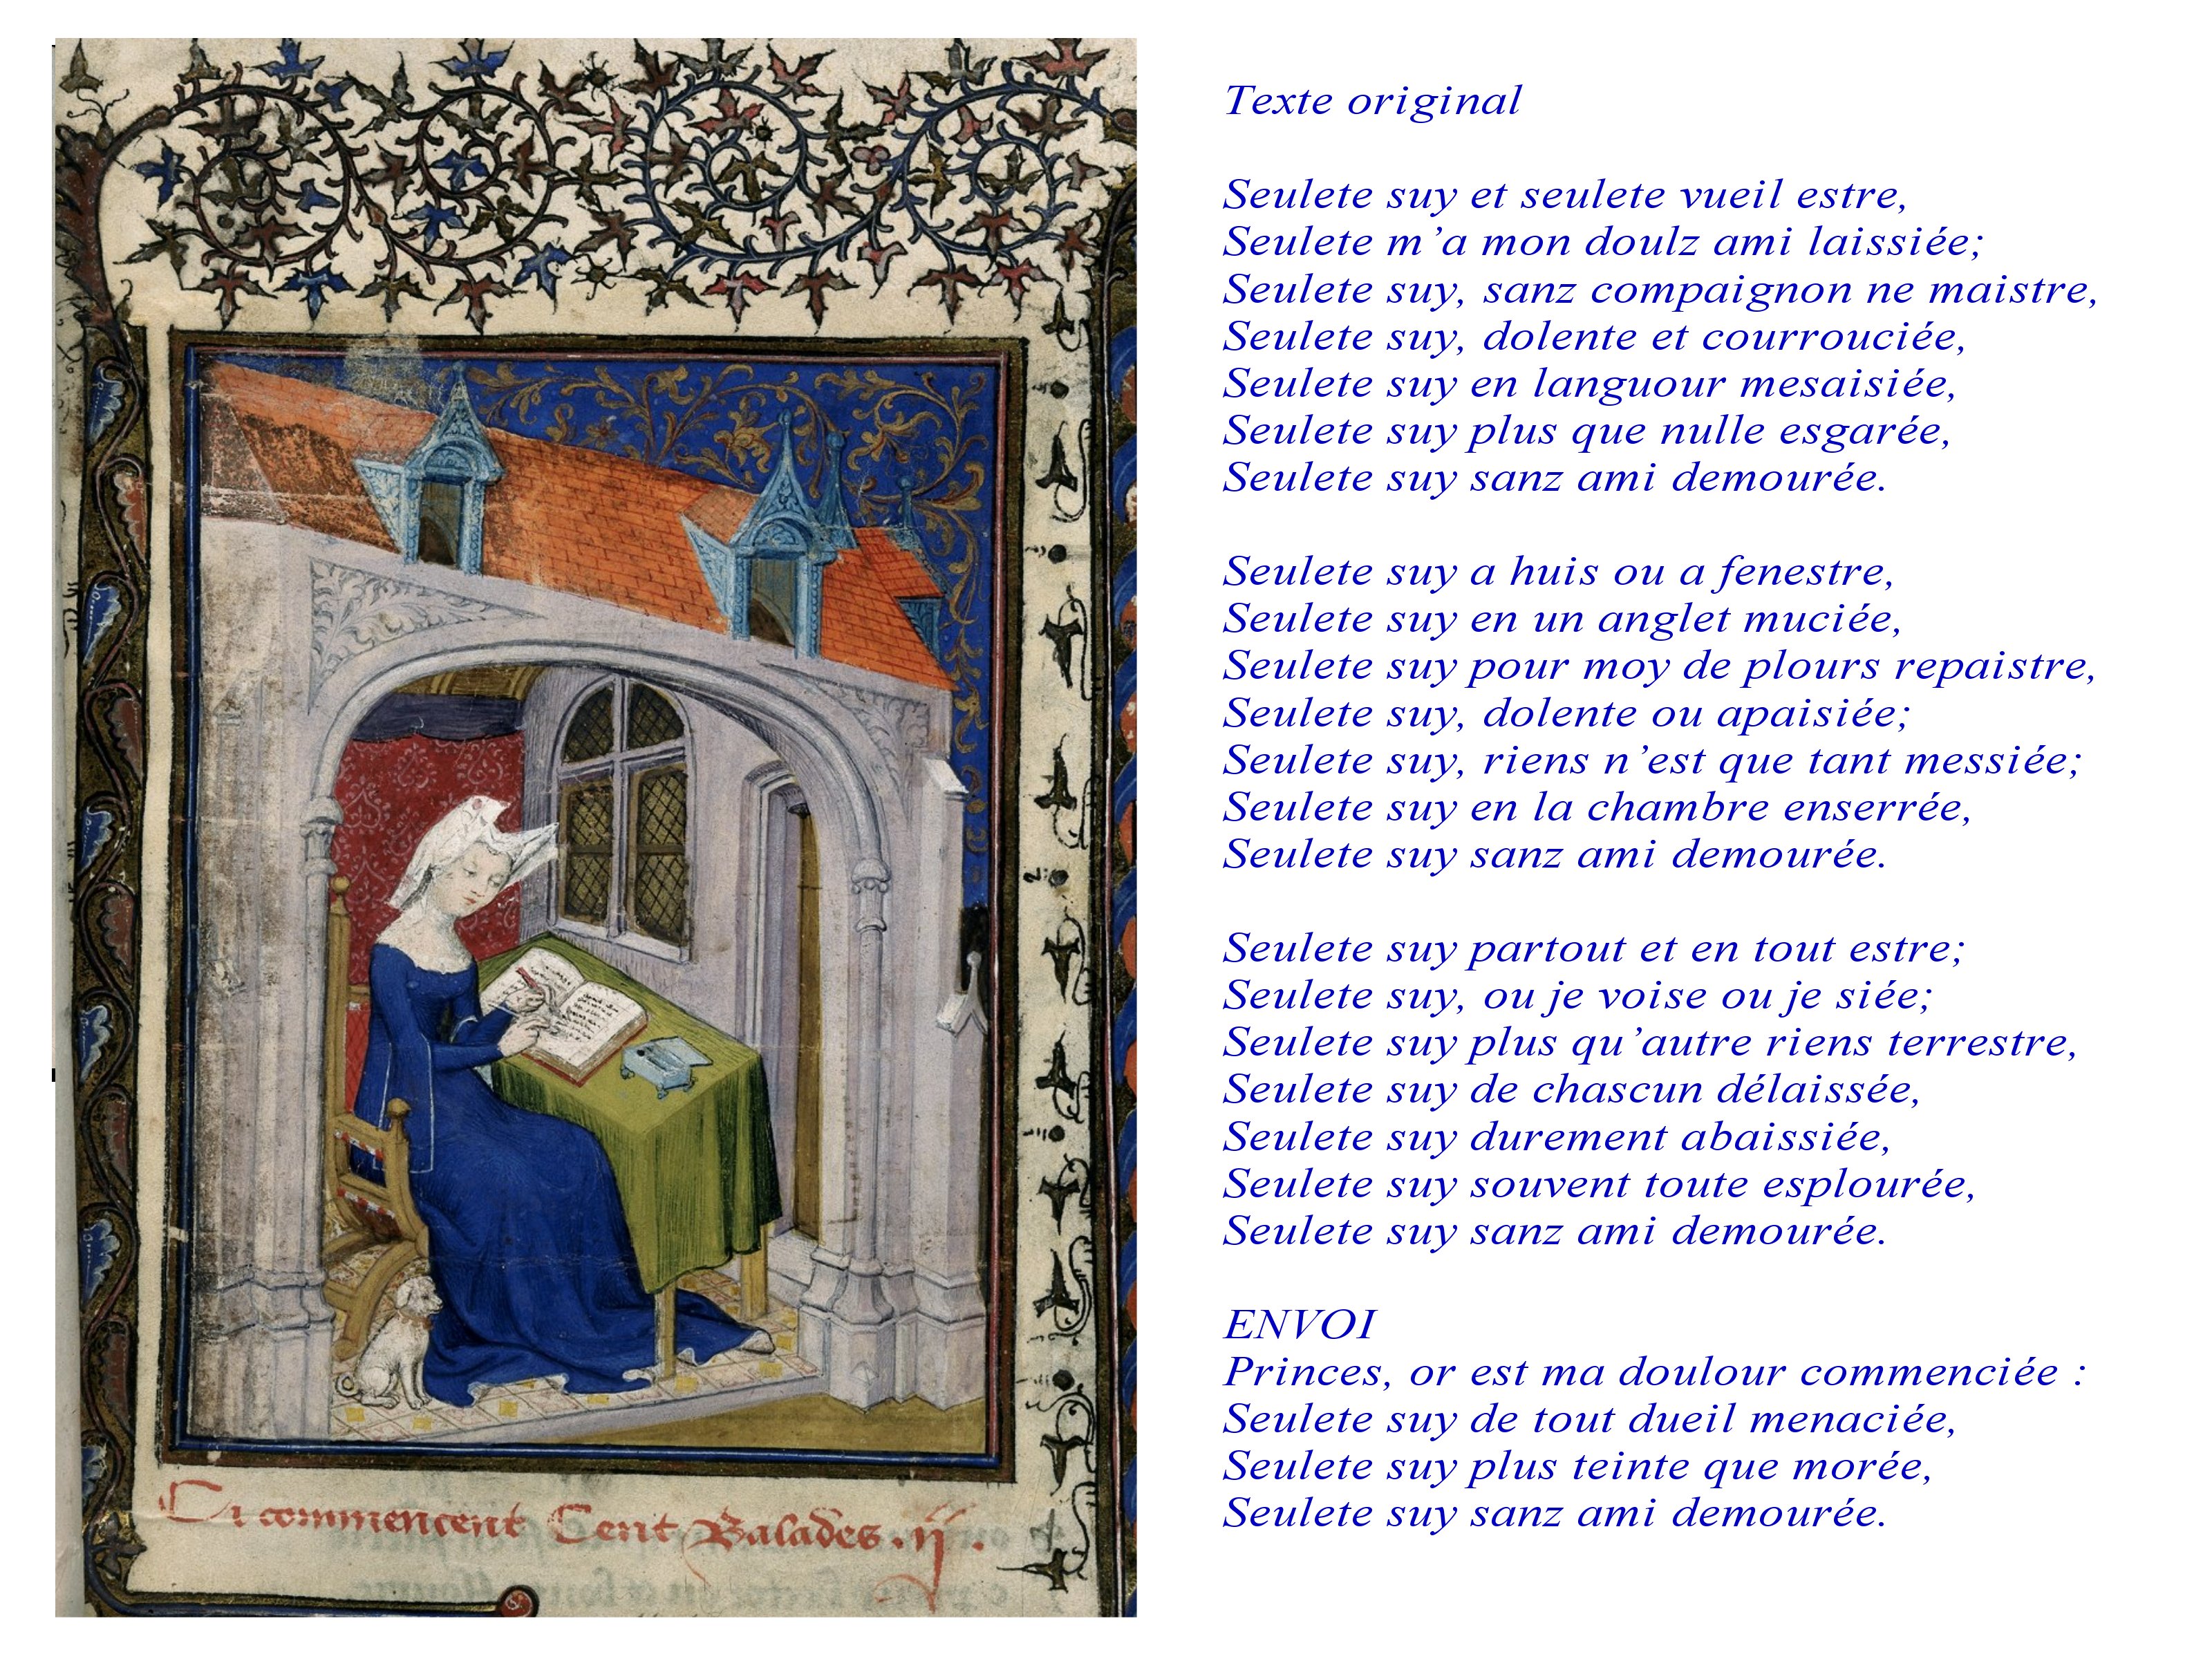 Ci commencent Cent Balades .ij.
Texte original
Seulete suy et seulete vueil estre,
Seulete m’a mon doulz ami laissiée;
Seulete suy, sanz compaignon ne maistre,
Seulete suy, dolente et courrouciée,
Seulete suy en languour mesaisiée,
Seulete suy plus que nulle esgarée,
Seulete suy sanz ami demourée.
Seulete suy a huis ou a fenestre,
Seulete suy en un anglet muciée,
Seulete suy pour moy de plours repaistre,
Seulete suy, dolente ou apaisiée;
Seulete suy, riens n’est que tant messiée;
Seulete suy en la chambre enserrée,
Seulete suy sanz ami demourée.
Seulete suy partout et en tout estre;
Seulete suy, ou je voise ou je siée;
Seulete suy plus qu’autre riens terrestre,
Seulete suy de chascun délaissée,
Seulete suy durement abaissiée,
Seulete suy souvent toute esplourée,
Seulete suy sanz ami demourée.
ENVOI
Princes, or est ma doulour commenciée :
Seulete suy de tout dueil menaciée,
Seulete suy plus teinte que morée,
Seulete suy sanz ami demourée.